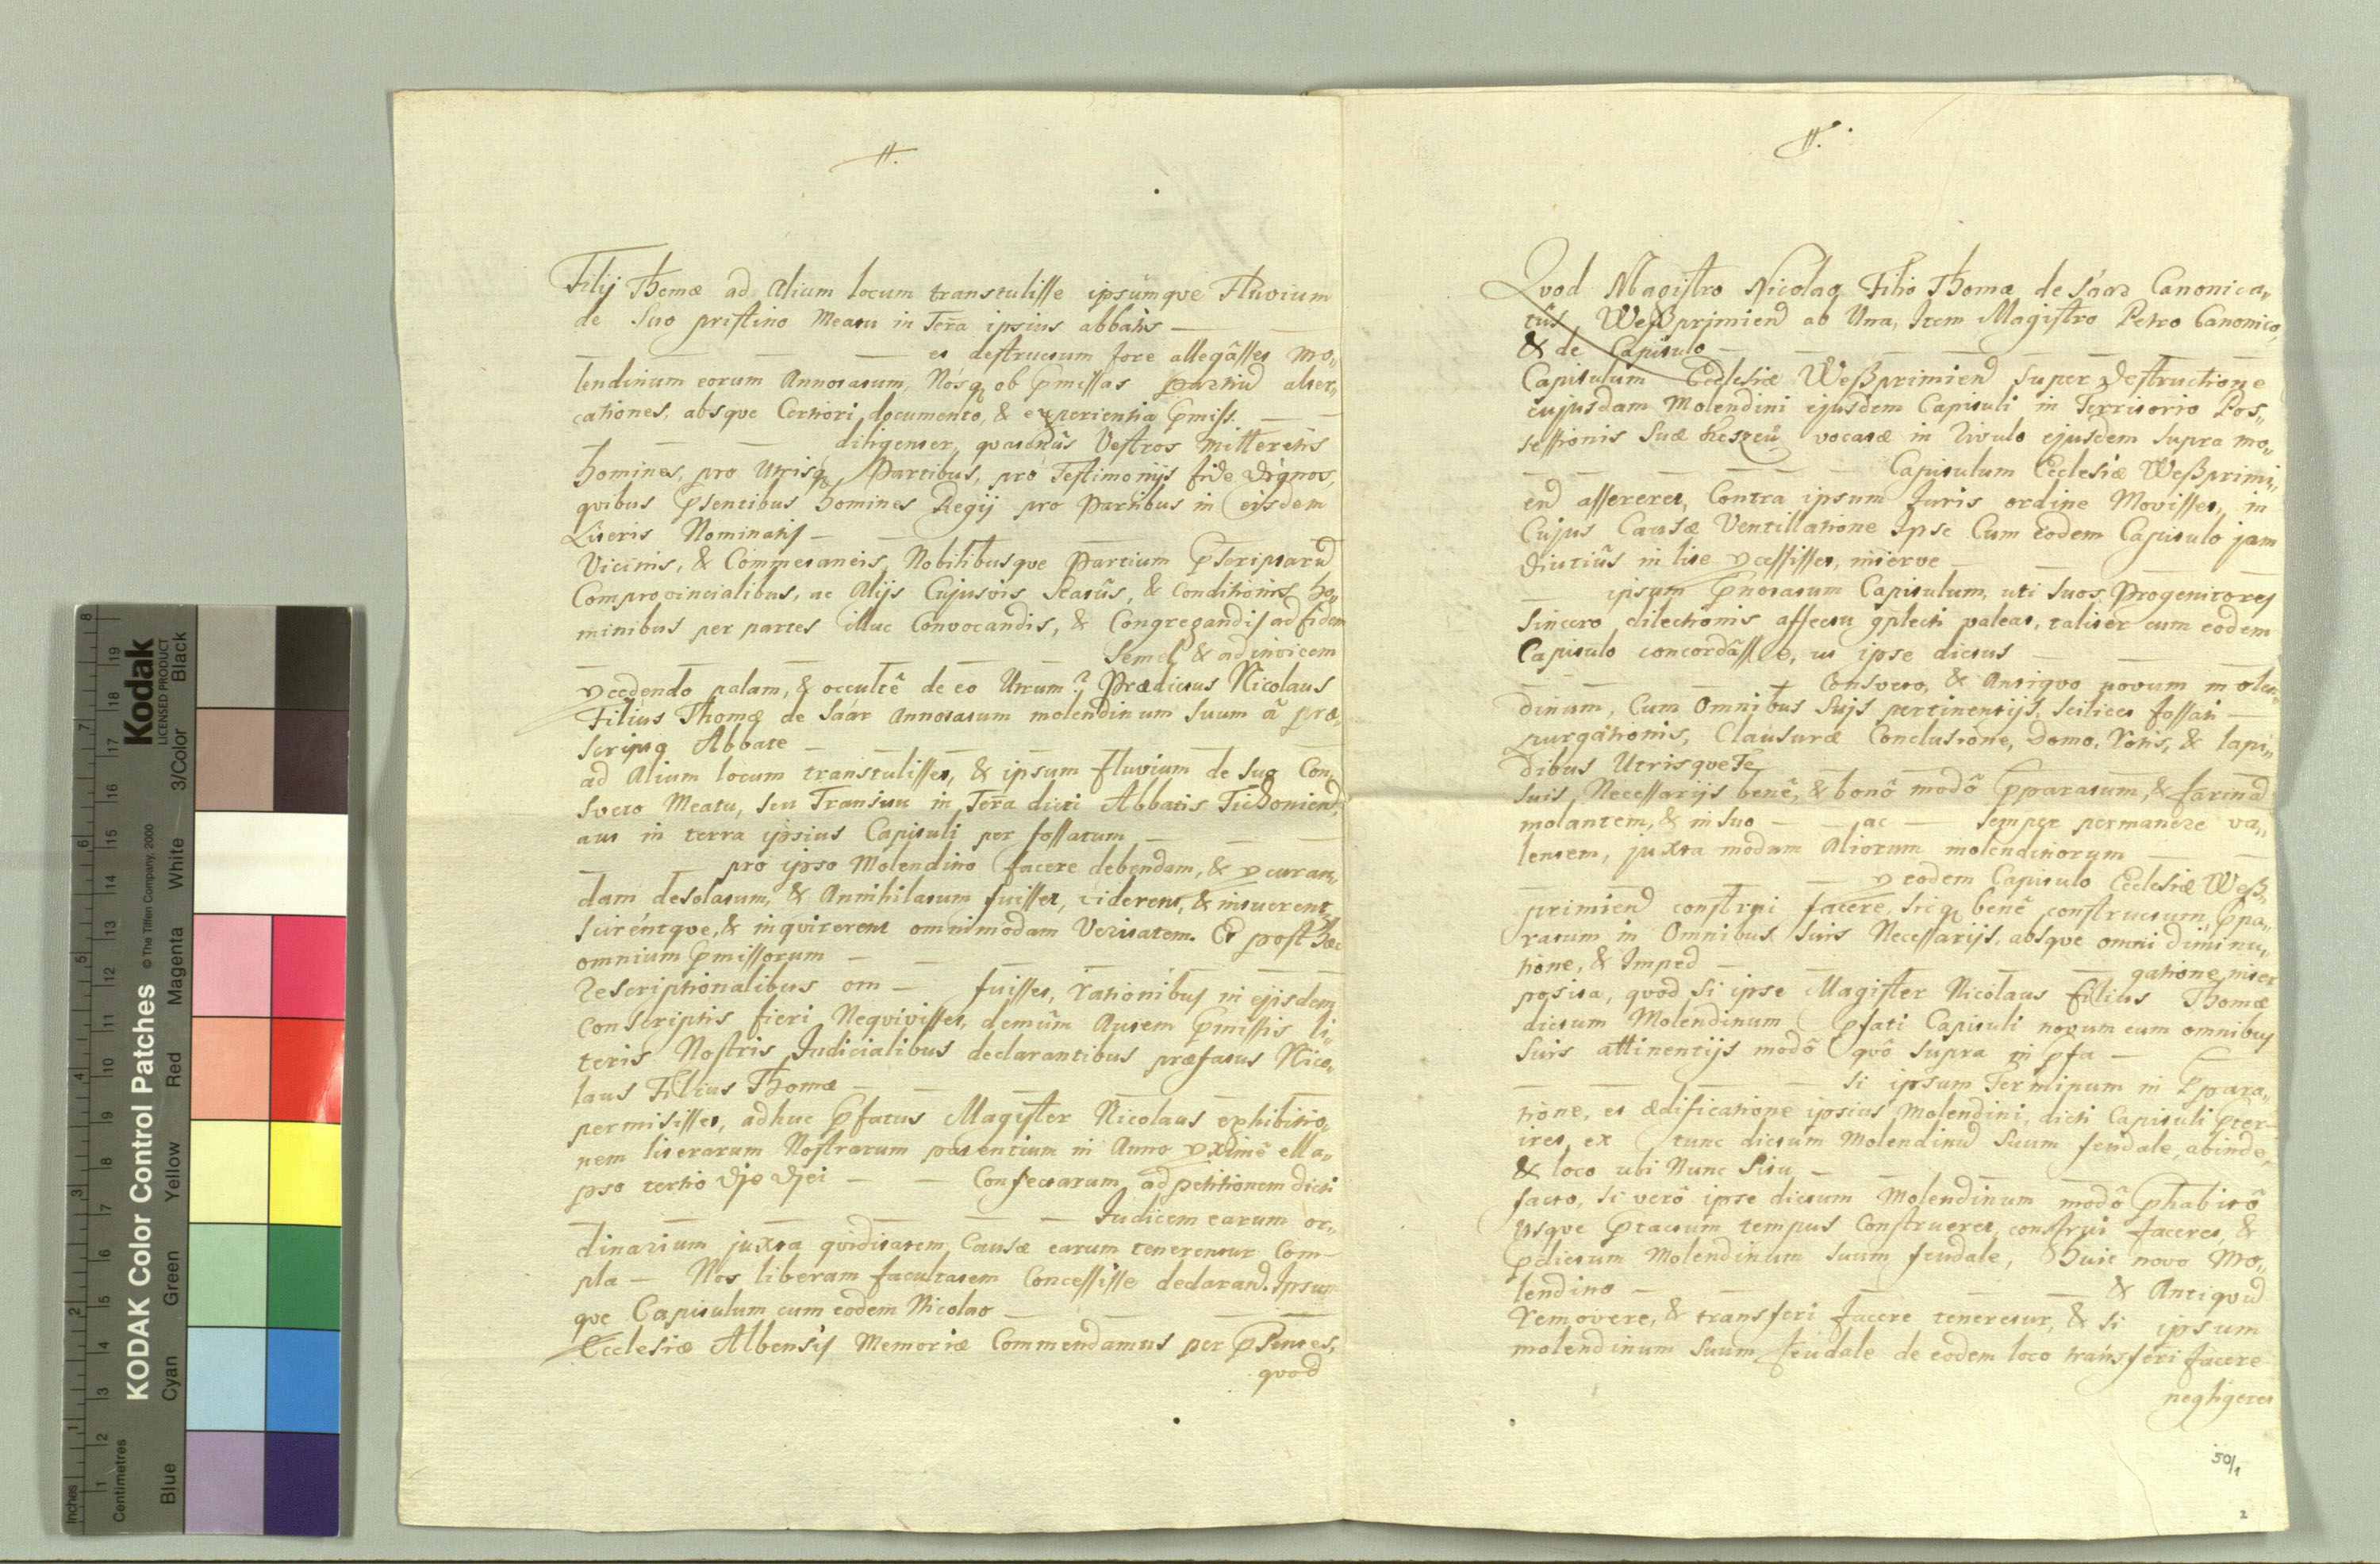 #.
Filij Thomæ ad Alium locum transtulisse ipsúmqve Fluvium
de Suo pristino Meatu in Terra ipsius abbatis —
— — — — et destructum fore allegâsset Mo„
lendinum eorum Annotatum, Nósq ob Pmissas partiu̅ alter„
cationes, absqve Certiori documento, & experientia Pmiss. — —
— — — diligenter, Vestros Mitteretis
homines, pro Utrisq Partibus, pro Testimonijs fide dignos,
qvibus Psentibus homines Regij pro Partibus in eisdem
Literis Nominatis —
Vicinis, & Commetaneis, Nobilibusqve Partium Pscriptaru̅
Comprovincialibus, ac Alijs Cujusvis Status, & Conditionis ho„
minibus per partes illuc Convocandis, & Congregandis ad fidem
Semel & ad invicem
pcedendo palam, & occultê de eo Utrum? Prædictus Nicolaus
Filius Thomæ de Saár Annotatum molendinum Suum â præ„
scripto Abbate —
ad Alium locum transtulisset, & ipsum fluvium de Suo Con„
sveto Meatu, seu Transitu in Terra dicti Abbatis Tichonien̅d,
aut in terra ipsius Capituli per fossatum — —
— pro ipso Molendino facere debendam, & pcuran„
dam desolatum, & Annihilatum fuisset, viderent, & intuerent„
Scirentqve, & inqvirerent omnimodam Veritatem. Et post hæc
omnium Pmissorum — —
Rescriptionalibus om — fuisset, rationibus in ejisdem
Conscriptis fieri Neqvivisset, demûm Autem Pmissis li„
teris Nostris Judicialibus declarantibus præfatus Nico„
laus Filius Thomæ — —
permisisset, adhuc Pfatus Magister Nicolaus exhibitio„
nem literarum Nostrarum patentium in Anno pximê ella„
pso tertio die diei — — Confectarum ad petitionem dicti
— — — — — Judicem earum or„
dinarium juxta qvidditatem Causæ earum tenerentur Com—
pla — Nos liberam facultatem Concessisse declarand. Ipsum
qve Capitulum cum eodem Nicolao —
Ecclesiæ Albensis Memoriæ Commendamus per Psentes,
qvod
#.
Qvod Magistro Nicolao Filio Thomæ de Saár Canonica„
tus Weßprimiend ab Una, Item Magistro Petro Canonico,
& de Capitulo —
Capitulum Ecclesiæ Weßprimiend Super destructione
cujusdam Molendini ejusdem Capituli in Territorio Pos„
sessionis Suæ Keszeü vocatæ in Rivulo ejusdem Supra mo„
— — — — — Capitulum Ecclesiæ Weßprimi„
end assereret, Contra ipsum Juris ordine Movisset, in
Cujus Causæ Ventillatione Ipse Cum eodem Capitulo jam
diutiûs in lite pcessisset, —
— ipsum Pnotatum Capitulum, uti Suos Progenitores
Sincero dilectionis affectu qplecti valeat, taliter cum eodem
Capitulo concordâsse, ut ipse dictus —
— — — — Consveto, & Antiqvo novum molen„
dinum, Cum Omnibus Suis pertinentijs, scilicet fossati —
purgationis, Clausuræ Conclusione, Domo, Rotis, & lapi„
dibus Utrisqve Te —
Suis Necessarijs benê, & bonô modô Pparatum, & farina̅
molantem, & in Suo — — ac — semper permanere va„
lentem, juxta modum Aliorum molendinorum — —
— — — — p eodem Capitulo Ecclesiæ Weß„
primiend construi facere, sicq benê constructum, Ppa„
ratum in Omnibus Suis Necessarijs, absqve omni diminu„
tione, & Imped —
— — — — — gatione inter
posita, qvod Si ipse Magister Nicolaus Filius Thomæ
dictum Molendinum Pfati Capituli novum cum omnibus
Suis attinentijs modô qvô Supra in Pfa — —
— — — — Si ipsum Terminum in Ppara„
tione, et ædificatione ipsius Molendini, dicti Capituli Pter-
iret, ex tunc dictum Molendinu̅ Suum feudale, abinde,
& loco ubi Nunc Situ —
facto, si verô ipse dictum Molendinum modô Phabitô
usqve Ptactum tempus Construeret, construi faceret, &
Pdictum Molendinum Suum feudale, Huic novo Mo„
lendino — — — — — & Antiqvu̅
removere, & transferi facere teneretur, & Si ipsum
molendinum Suum feudale de eodem loco transferi facere
negligeret
50/1
2
KODAK Color Control Patches
© The Tiffen Company, 2000
Kodak
LICENSED PRODUCT
Inches
Centimetres
Blue
Cyan
Green
Yellow
Red
Magenta
White
3/Color
Black